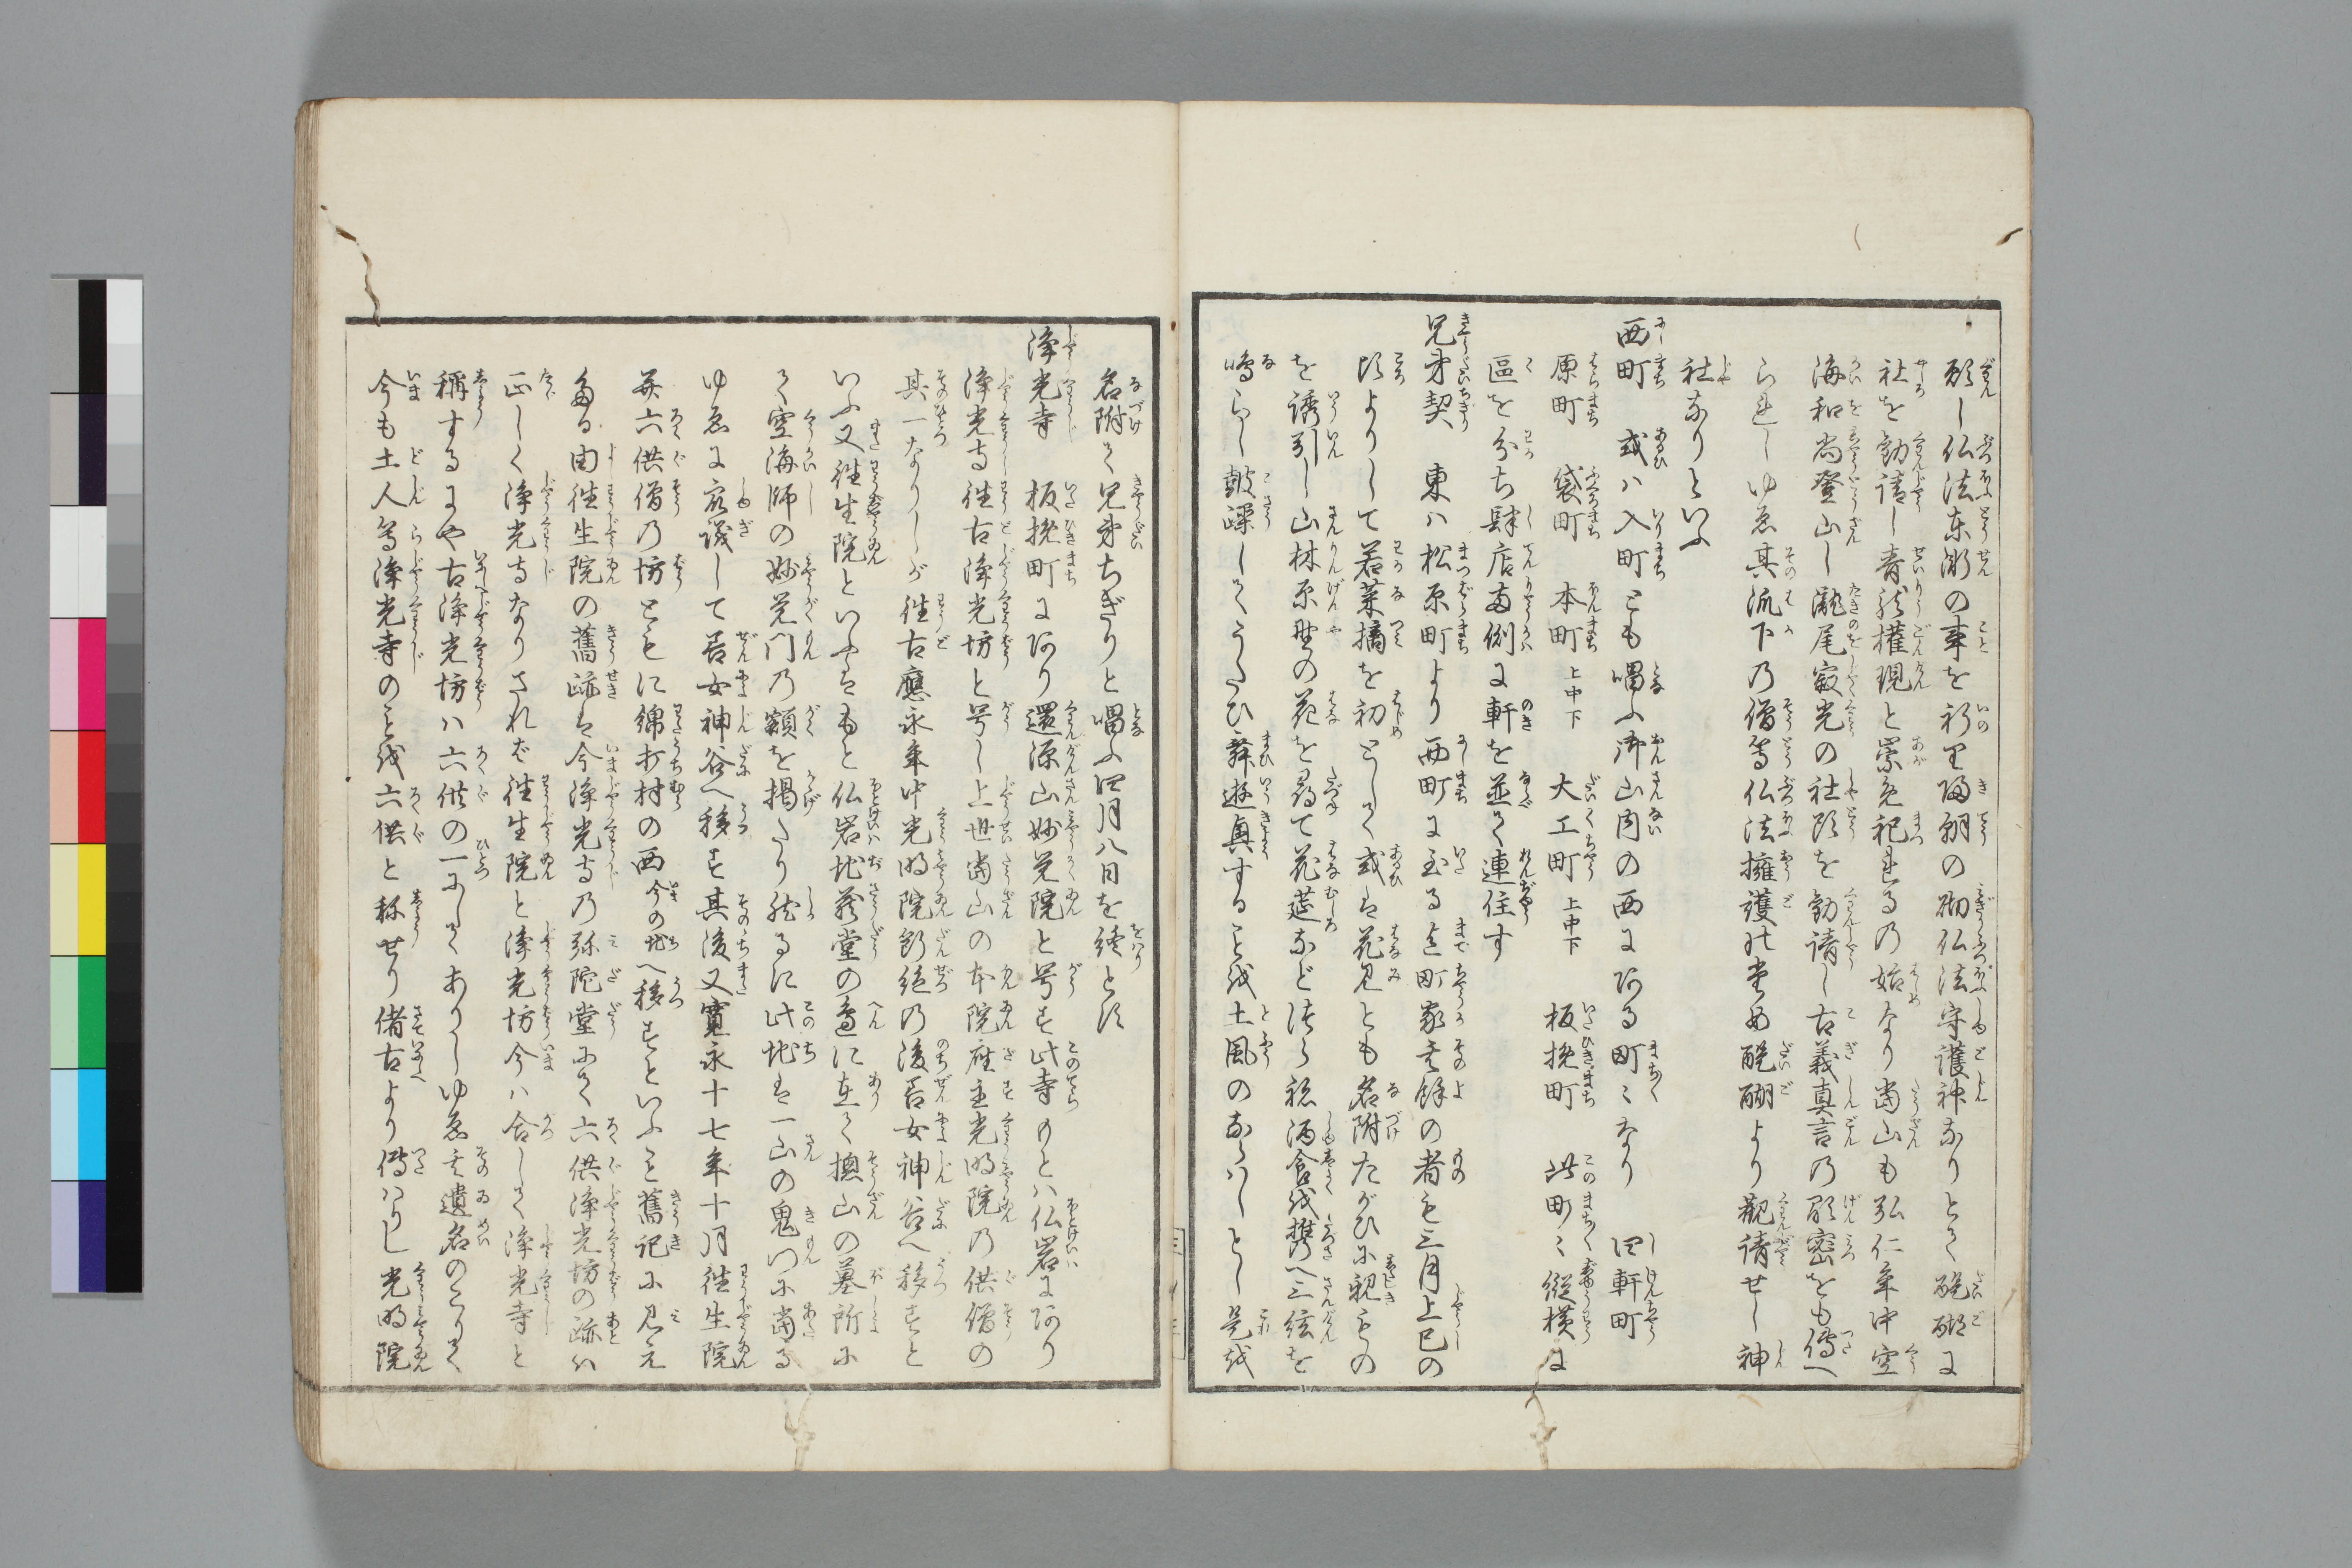 願し仏法東漸の事を祈里帰朝の砌仏法守護神なりとて醍醐に
社を勧請し青龍権現と崇免祀れるの始なり当山も弘仁年中空
海和尚登山し瀧尾寂光の社頭を勧請し古義真言の顕密をも傳へ
られしゆゑ其流下の僧等仏法擁護のため醍醐より勧請せし神
社なりといふ
西町　或ハ入町とも唱ふ御山内の西にある町々なり　四軒町
原町　袋町　本町上中下　大工町上中下　板挽町　此町々縦横に
區を分ち肆店両側に軒を並て連住す
兄弟契　東ハ松原町より西町に至る迄町家其餘の者も三月上巳の
頃よりして若菜摘を初として或は花見とも名附たがひに親もの
を誘引し山林原野の花を尋て花莚など設り酒食を携へ三絃を
鳴らし鼓躁してうたひ舞遊興する事を土風のならハしとし是を
名附て兄弟ちぎりと唱ふ四月八日を終とす
浄光寺　板挽町にあり還源山妙覚院と号す此寺もとハ仏岩にあり
浄光寺往古浄光坊と号し上世当山の本院座主光明院の供僧の
其一なりしが往古應永年中光明院断絶の後善女神谷へ移すと
いふ又往生院といふはもと仏岩地蔵堂の邊に在て惣山の墓所に
て空海師の妙覚門の額を掲たり然るに此地は一山の鬼門に当る
ゆゑに衆議して善女神谷へ移す其後又寛永十七年十月往生院
并六供僧の坊ともに綿打村の西今の地へ移すといふこと舊記に見え
たる由往生院の舊跡は今浄光寺の弥陀堂にて六供浄光坊の跡ハ
正しく浄光寺なりされば往生院と浄光坊今ハ合して浄光寺と
稱するにや古浄光坊ハ六供の一にてありしゆゑ其遺名のこりて
今も土人等浄光寺のことを六供と称せり偖古より傳ハりし光明院